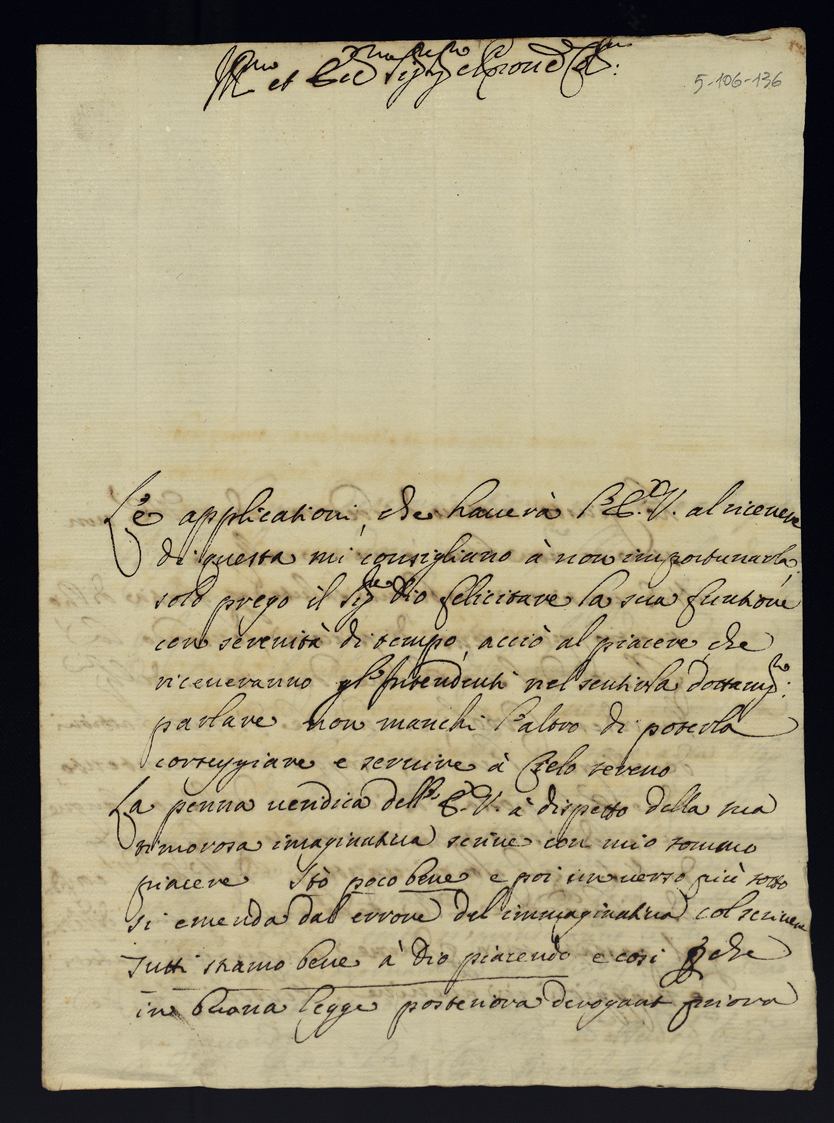 Ill.mo et Ecc.mo Sig.r Sig.r e Pron Col.mo:
5-106-136
Le applicationi, che haverà l'E.V. al ricevere
di questa mi consigliano à non importunarla,
solo prego il Sig.re Dio felicitare la sua funtione
con serenità di tempo, acciò al piacere, che
riceveranno gl'Intendenti nel sentirla dottam.te:
parlare non manchi l'altro di poterla
corteggiare e servire à Cielo sereno
La penna veridica dell'E.V. à dispetto della sua
timorosa imaginativa scrive con mio sommo
piacere Stò poco bene e poi un verso più sotto
si emenda dal errore del immaginativa col scrivere
Tutti stiamo bene à Dio piacendo e così p che
in buona legge posteriora derogant priora